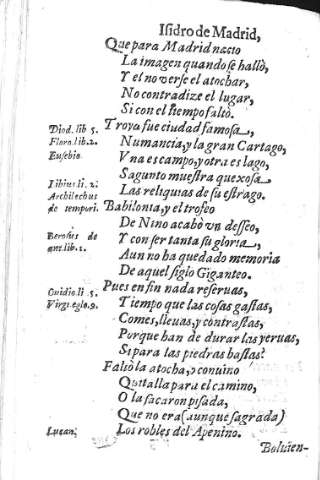 Isidro de Madrid,
Que para Madrid nacio
La imagen quando se hallò,
Y el no verse el atochar,
No contradize el lugar,
Si con el tiempo faltò.
Diod. lib 5. Troya fue ciudad famosa,
Flora lib.2. Numancia, y la gran Cartago,
Eusebio Vna es campo, y otra es lago,
Sagunto muestra quexosa,
Libius li. 2. Las reliquias de su estrago.
Archilochus
de tempori. Babilonia, y el trofeo
De Nino acabò vn desseo,
Berosus de Y con ser tanta su gloria,
ant. lib. 1. Aun no ha quedado memoria
De aquel siglo Giganteo.
Ouidio li. 5. Pues en fin nada reseruas,
Virg. egl. 9. Tiempo que las cosas gastas,
Comes, lleuas, y contrastas,
Porque han de durar las yeruas,
Si para las piedras bastas?
Faltò la atocha, ò conuino
Quitalla para el camino,
O la sacaron pisada,
Que no era (aunque sagrada)
Lucan. Los robles del Apenino.
Boluien-